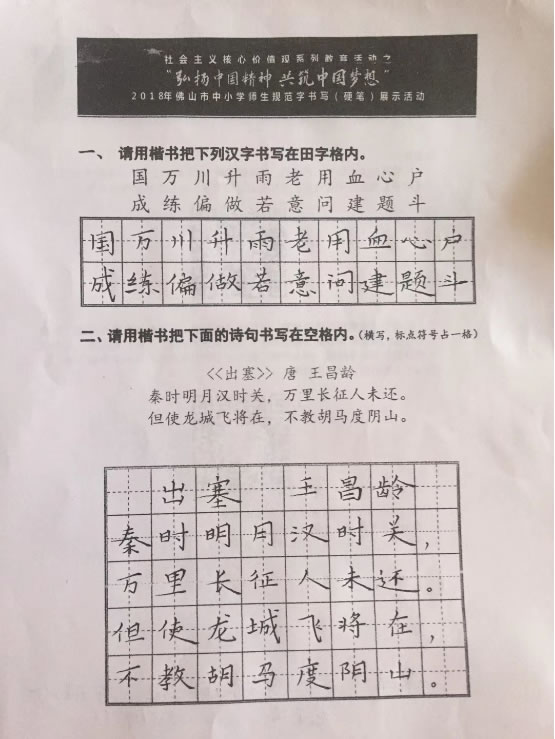 社会主义核心价值观系列教育活动之
“弘扬中国精神 共筑中国梦想”
2018年佛山市中小学师生规范字书写（硬笔）展示活动
一、 请用楷书把下列汉字书写在田字格内。
国 万 川 升 雨 老 用 血 心 户
成 练 偏 做 若 意 问 建 题 斗
国 万 川 升 雨 老 用 血 心 户
成 练 偏 做 若 意 问 建 题 斗
二、请用楷书把下面的诗句书写在空格内。（横写，标点符号占一格）
<<出塞>> 唐 王昌龄
秦时明月汉时关，万里长征人未还。
但使龙城飞将在，不教胡马度阴山。
出 塞 王 昌 龄
秦 时 明 月 汉 时 关 ，
万 里 长 征 人 未 还 。
但 使 龙 城 飞 将 在 ，
不 教 胡 马 度 阴 山 。